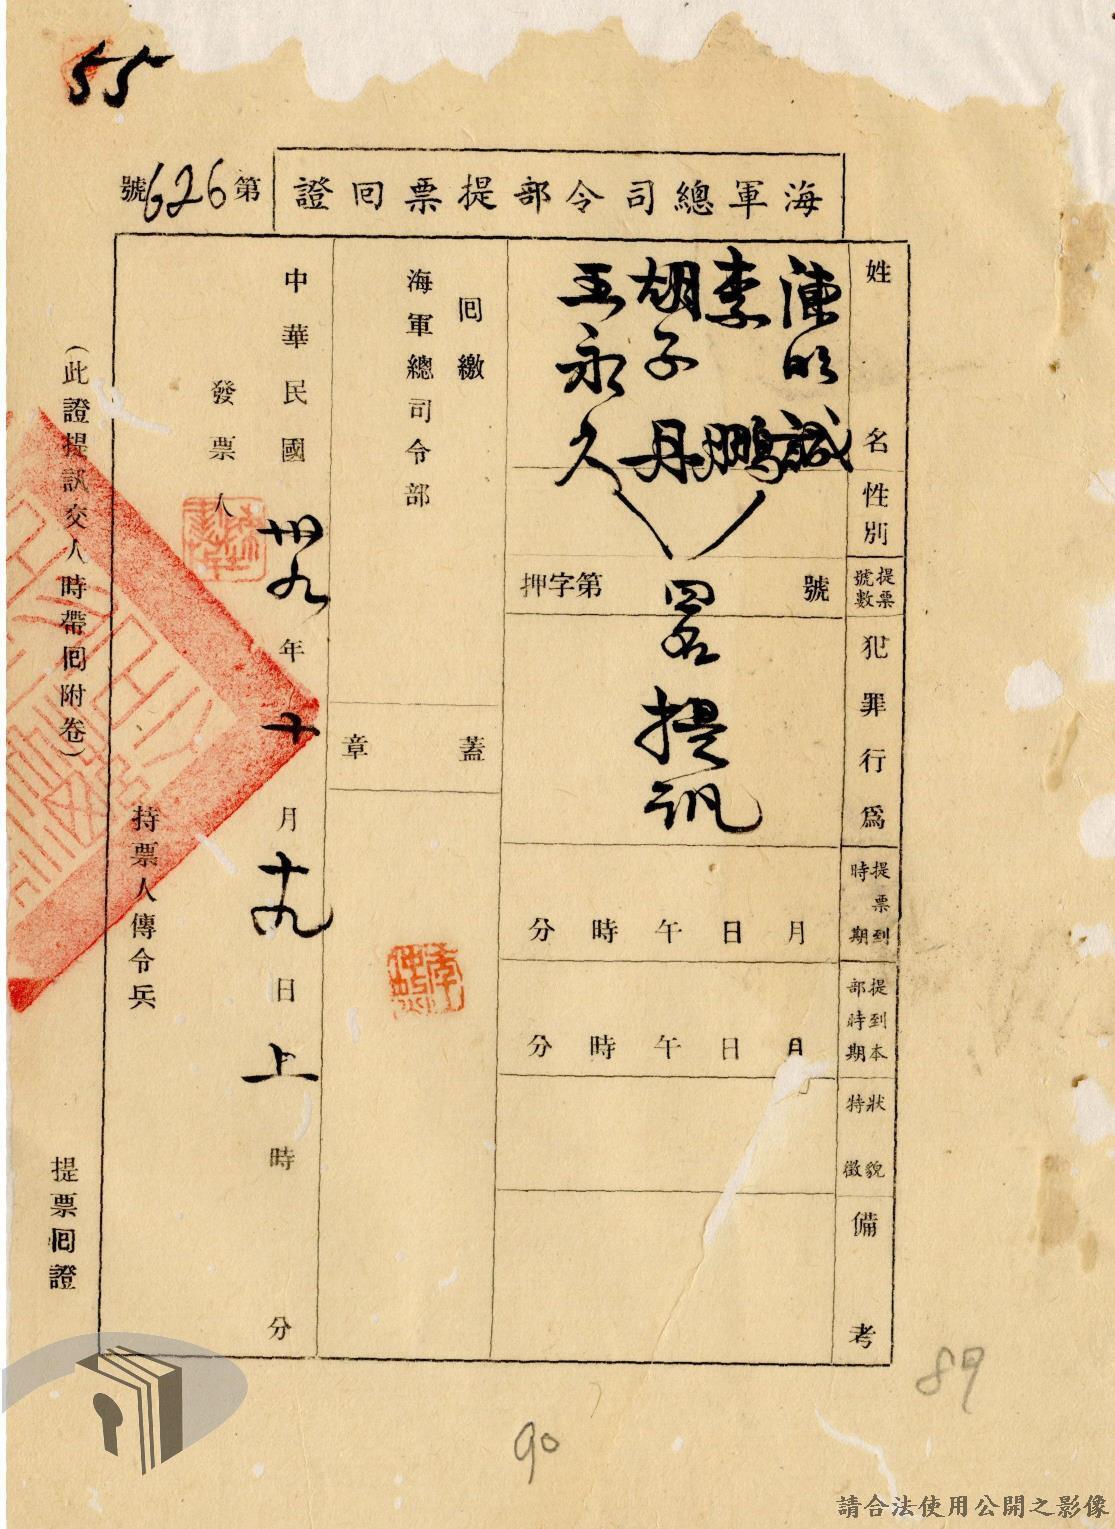 55
海軍總司令部提票回證
第626號
姓名
陳明誠
李鵬
胡子丹
王永久
四名提訊
性別
提票號數
號
押字第
犯罪行為
提票到時期
月日午時分
提到本部時期
月日午時分
狀貌特徵
備考
回繳
海軍總司令部
蓋章
中華民國卅九年十月十九日上時分
發票人
持票人傳令兵
(此證提訊交人時帶回附卷)
提票回證
89
90
請合法使用公開之影像